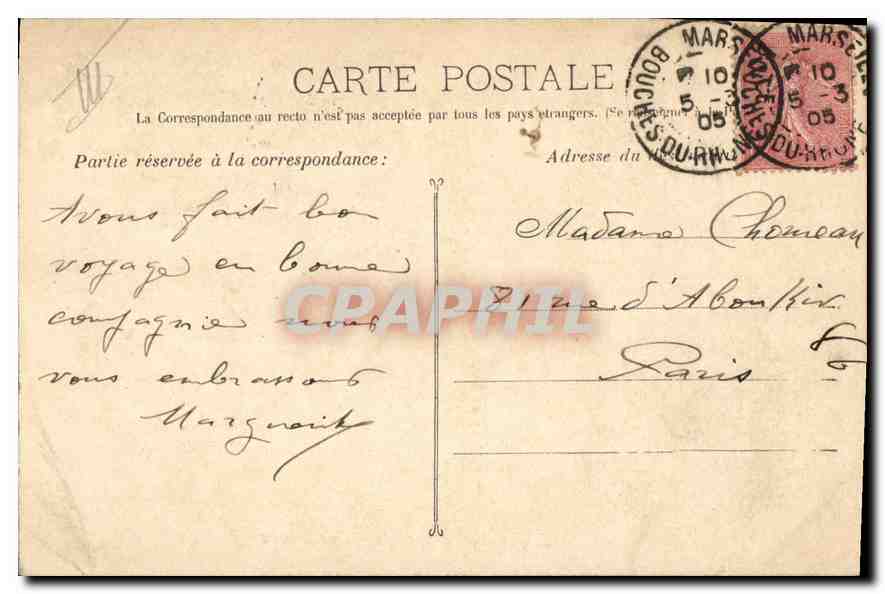 CARTE POSTALE
La Correspondance au recto n'est pas acceptée par tous les pays étrangers. (Se renseigner à
Partie réservée à la correspondance :
Adresse du
Avous fait bon
voyage en bonne
compagnie nous
vous embrassons
Marguerite
Madame Chomeau
21 rue d'Aboukir
Paris
MARSEILLE
10
5 - 3
05
BOUCHES-DU-RHONE
MARSEILLE
10
5 - 3
05
BOUCHES-DU-RHONE
CPAPHIL